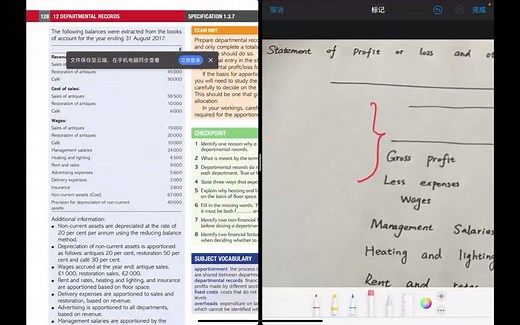 128 12 DEPARTMENTAL RECORDS
SPECIFICATION 1.3.7
The following balances were extracted from the books
of account for the year ending 31 August 2017:
文件保存至云端，在手机电脑同步查看
Restorations 45 000
Café 30 000
Cost of sales:
Sales of antiques 59 500
Restoration of antiques 10 000
Café 6 000
Wages:
Sales of antiques 15 000
Restoration of antiques 20 000
Café 10 000
Management salaries 24 000
Heating and lighting 4 500
Rent and rates 9 000
Advertising expenses 5 600
Delivery expenses 2 000
Insurance 3 600
Non-current assets (Cost) 67 000
Provision for depreciation of non-current 40 000
assets
Additional information:
• Non-current assets are depreciated at the rate of
20 per cent per annum using the reducing balance
method.
• Depreciation of non-current assets is apportioned
as follows: antiques 20 per cent, restoration 50 per
cent and café 30 per cent.
• Wages accrued at the year end: antique sales,
£1 000, restoration sales, £2 000.
• Rent and rates, heating and lighting, and insurance
are apportioned based on floor space.
• Delivery expenses are apportioned to sales and
restoration, based on revenue.
• Advertising is apportioned to all departments,
based on revenue.
• Management salaries are apportioned by the
EXAM HINT
Prepare departmental rec
and only complete a tota
should do so.
If the basis for apporti
you will need to study the
carefully to decide on the
This should be one that g
allocation.
In your workings, caref
required for the apportionm
CHECKPOINT
1 Identify one reason why a
departmental records.
2 What is meant by the term
3 Departmental records do n
each department. True or
4 State three ways that expe
5 Explain why heating and li
on the basis of floor space.
6 Fill in the missing words. '
it must be both f
7 Identify two non-financial f
before closing a departmen
8 Identify two financial factor
when deciding whether to
SUBJECT VOCABULARY
apportionment the process
are shared between departme
departmental records records
profits made by different secti
fixed costs costs that do not
levels
overheads expenditure on lab
which cannot be
取消
标记
完成
Statement of Profit or loss and
Gross profit
Less expenses
Wages
Management Salaries
Heating and lighting
Rent and rates